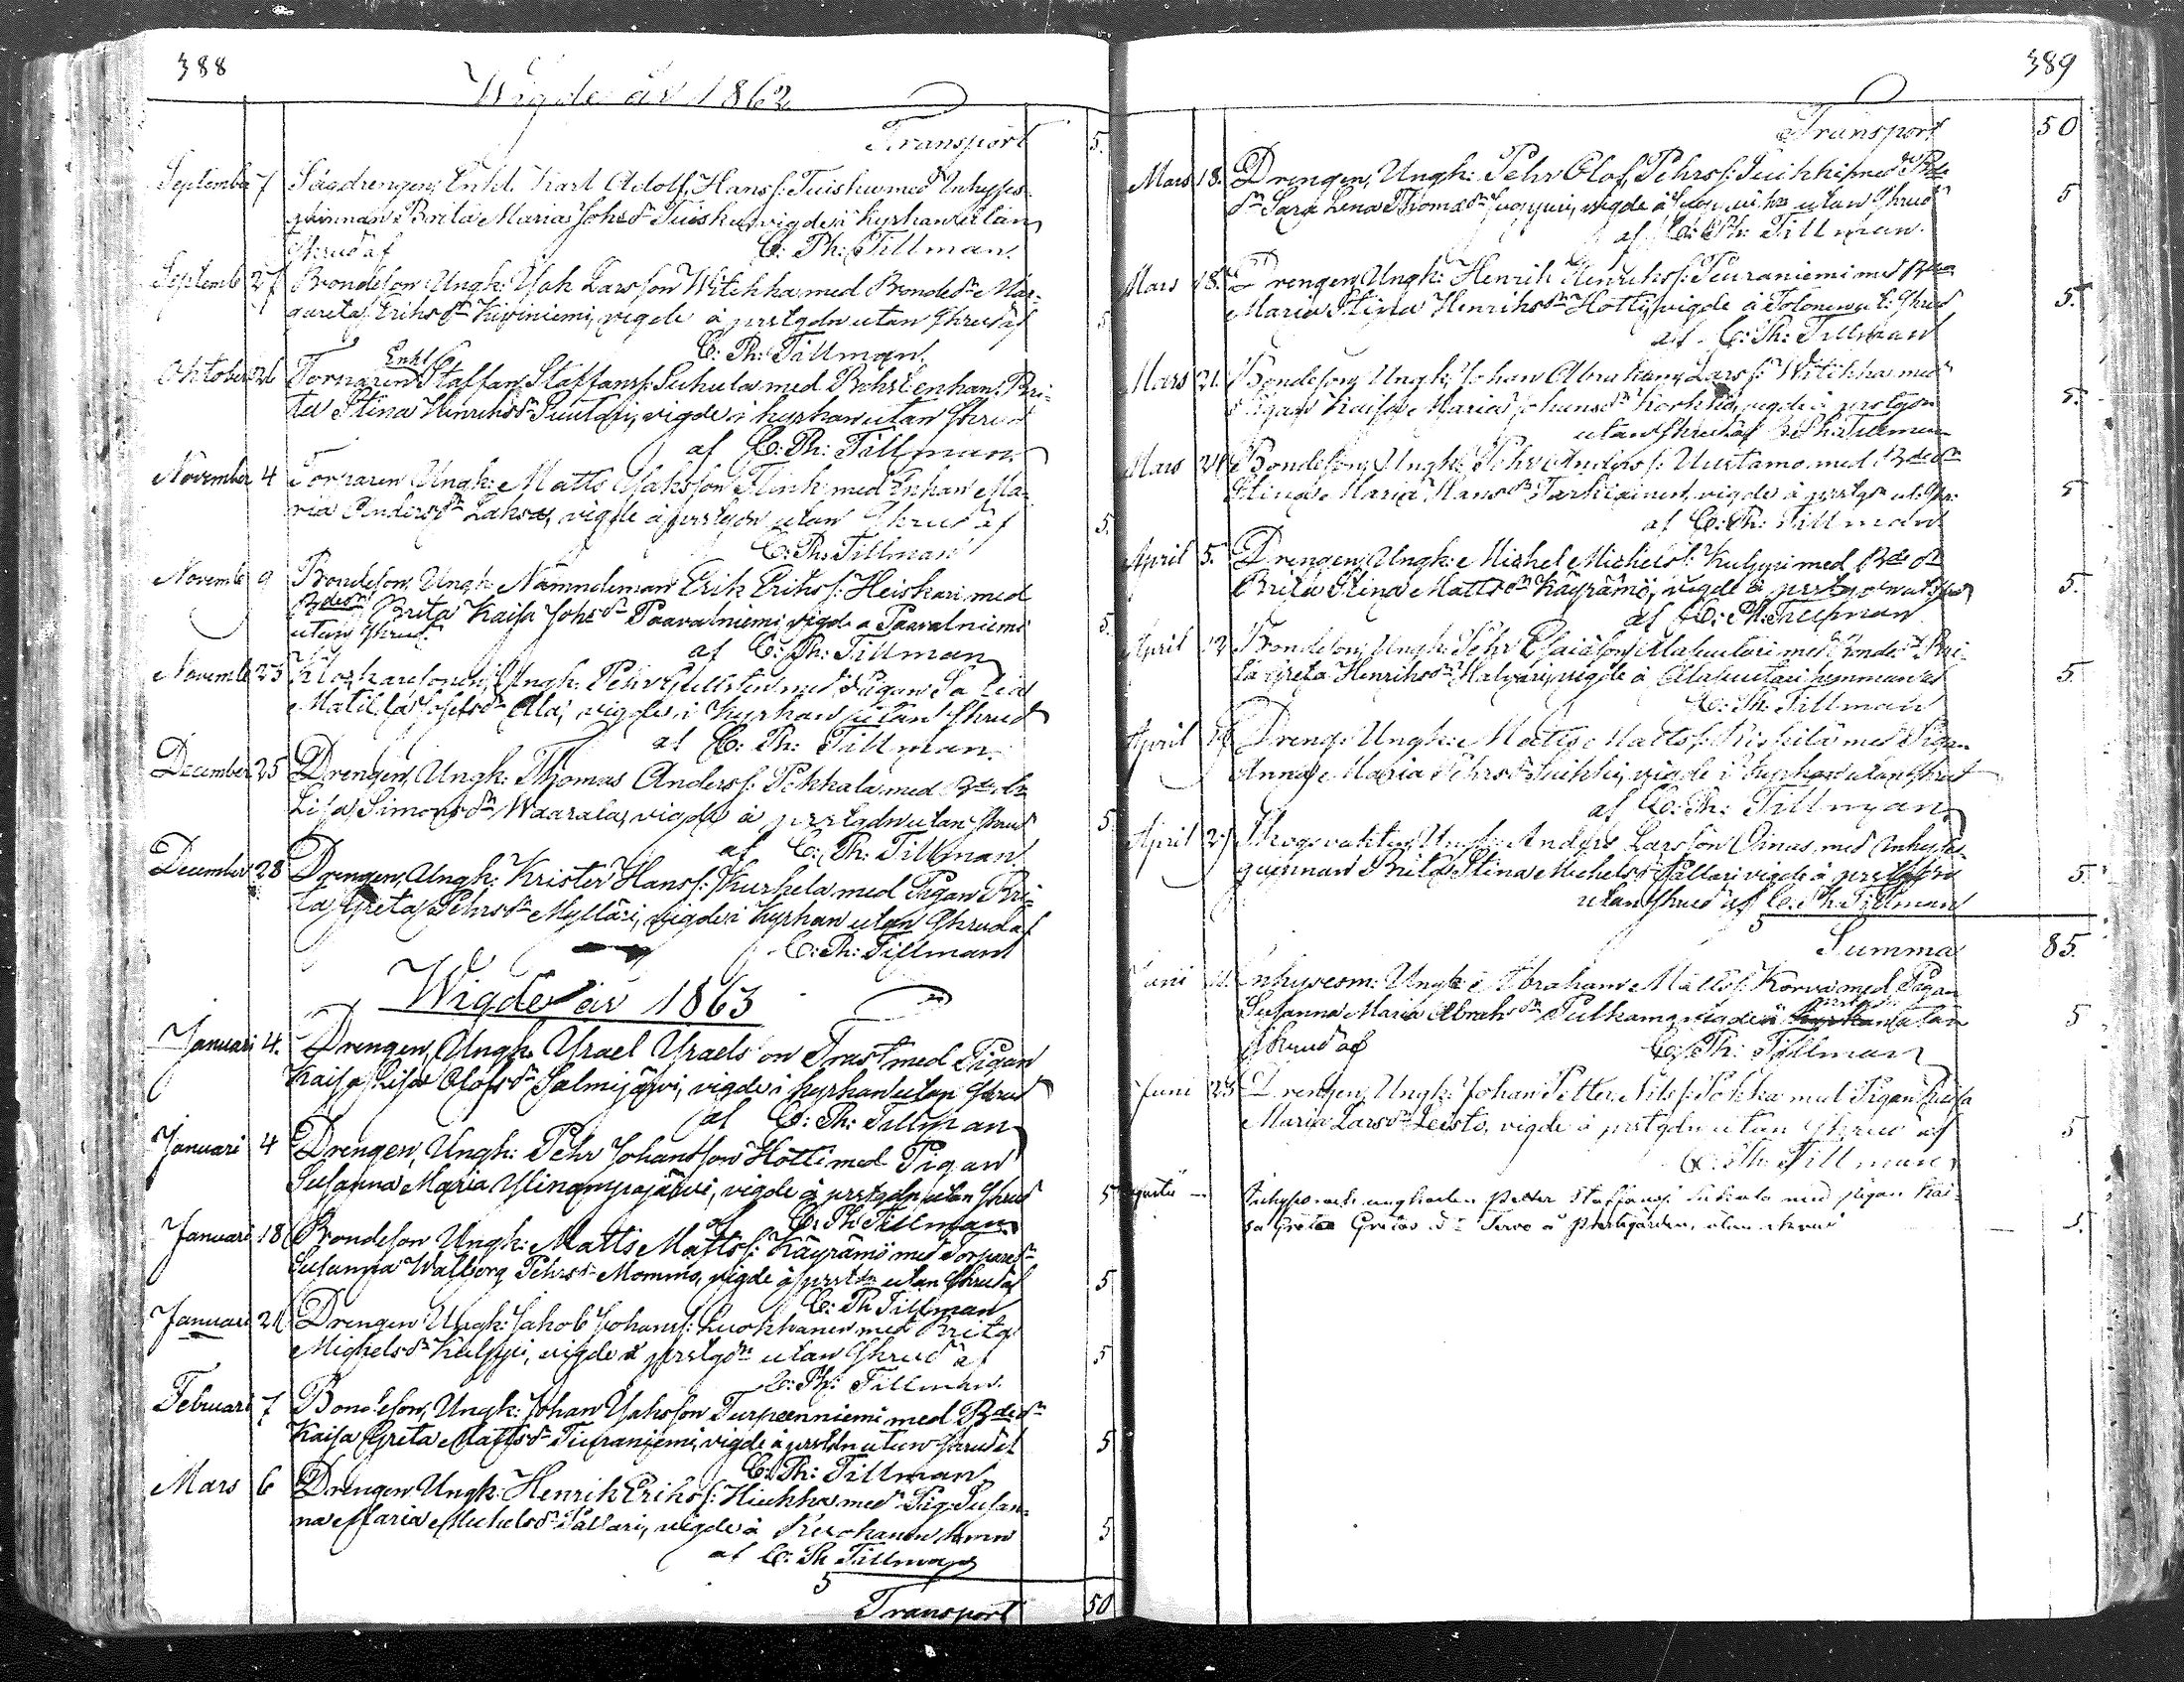 388
Wigde år 1862
Transport 5.
September 7 Enkl. Karl Adolf Hans s: Tuisku med Inhyses
qvinnan Brita Maria Johsdr Tuisku, vigde i kyrkan utan
skrud af C: Ph: Tillman.
Septemb 27 Bondeson Ungk: Isak Larsson Witikka med Bondedr Mar-
gareta Eriksdr Kiviniemi, vigde å prstgdn utan skrud af 5
C: Ph: Tillman.
Oktober 26 Torparen Enkl Staffan Staffans s: Sukula med Enkan Bri-
ta Stina Henriksdr Suutari, vigde i kyrkan utan skrud
af C: Ph: Tillman
November 4 Torparen Ungk: Matts Isaksson Flink med Enkan Ma-
ria Andersdr vigde å prstgdn utan skrud af 5.
C: Ph: Tillman
Novemb 9 Bondeson, Ungk: Nämndeman Erik Eriks s: Heiskari med
Bdedr Brita Kaisa Johsdr Paavalniemi vigde å Paavalniemi 5.
utan skrud.
af C: Ph: Tillman
Novemb 23 Klockaresonen, Ungk: Pehr med Pigan
Matilda Josefsdr Ala, vigde i kyrkan utan skrud
af C: Ph: Tillman.
December 25 Drengen, Ungk: Thomas Anders s: Pokkala med Bdedr
Lisa Simonsdr Waarala, vigde å prstgdn utan skrud 5
af C: Ph: Tillman.
December 28 Drengen, Ungk: Krister Hans s: Kurkela med Pigan Bri-
ta Greta Pehrsdr Mylläri, vigde i kyrkan utan skrud af
C: Ph: Tillman
Wigde år 1863
Januari 4. Drengen, Ungk. Israel Israelsson Trast med Pigan
Kaisa Lisa Olofsdr Salmijärvi, vigde i kyrkan utan skrud
af C: Ph: Tillman
Januari 4 Drengen, Ungk: Pehr Johansson Hotti med Pigan
Susanna Maria Ylinampajärvi, vigde å prstgdn utan skrud 5
af C: Ph: Tillman
Januari 18 Bondeson Ungk: Matts Matts s: Käyrämö med Torparedr
Susanna Walborg Pehrsdr Mommo, vigde å prstdn utan skrud af 5
C: Ph Tillman
Januari Drengen Ungk: Jakob Johans s: Luokkanen med Brita
Michelsdr Kulppi, vigde å prstgdn utan skrud af 5
C: Ph: Tillman.
Februari 7 Bondeson, Ungk: Johan Isaksson Turpeenniemi med Bdedr
Kaisa Greta Mattsdr Teuraniemi, vigde å prstdn utan skrud af 5
C: Ph: Tillman
Mars 6 Drengen Ungk: Henrik Eriks s: Hiukka med Pig: Susan-
na Maria Michelsdr Pallari, vigde å 5
af C: Ph Tillman
5
Transport 50
389
Transport 50
Mars 18. Drengen, Ungk: Pehr Olof Pehrs s: Suikki med Bde
dr Sara Lena Thomasdr vigde å utan skrud 5
af C: Ph: Tillman.
Mars 18. Drengen, Ungk: Henrik Henriks s: Teuraniemi med Bdedr
Maria Stina Henriksdr Hotti, vigde å Tolonen ut: skrud 5.
af C: Ph: Tillman
Mars 21. Bondeson, Ungk, Johan Abraham Lars s: Witikka med
Pigan Kaisa Maria Johansdr Korkia, vigde å prstgdn 5.
utan skrud af C: Ph: Tillman
Mars 24 Bondeson, Ungk: Pehr Anders s: Uustamo med Bdedr
Stina Maria Hansdr Tarkiainen, vigde å prstgn ut. skr. 5
af C: Ph: Tillman
April 5. Drengen, Ungk: Michel Michels s: Kulppi med Bdedr
Brita Stina Mattsdr Käyrämö, vigde å prstgdn ut skrud 5.
af C: Ph: Tillman
April 12 Bondeson, Ungk: Pehr Esaiasson Alasuutari med Bondedr Bri-
ta Greta Henriksdr Halvari, vigde å Alasuutari hemman af 5.
C: Ph: Tillman
April Dreng: Ungk: Matts Matts s: med Pigan
Anna Maria Pehrsdr Suikki, vigde i kyrkan utan skrud
af C: Ph: Tillman
April 27 Skogsvaktar, Ungk: Anders Larsson Oinas, med Inhyses-
qvinnan Brita Stina Michelsdr Pallari vigde å prstgdn 5.
utan skrud af C: Ph: Tillman
5
Summa 85.
Juni Inhysesm: Ungk: Abraham Matts s: Korva med Pigan
Susanna Maria Abrahsdr Pulkamo vigde å prstgdn utan 5
skrud af C: Ph: Tillman
Juni 23 Drengen, Ungk: Johan Petter Nils s: Pokka med Pigan Kaisa
Maria Larsdr Leisto, vigde å prstgdn utan skrud af 5
C: Ph: Tillman
Augusti — ungkarlen Petter Staffans s: Sukula med pigan Kai-
sa Greta Gretas dr Tervo å Prestgården, utan skrud 5.